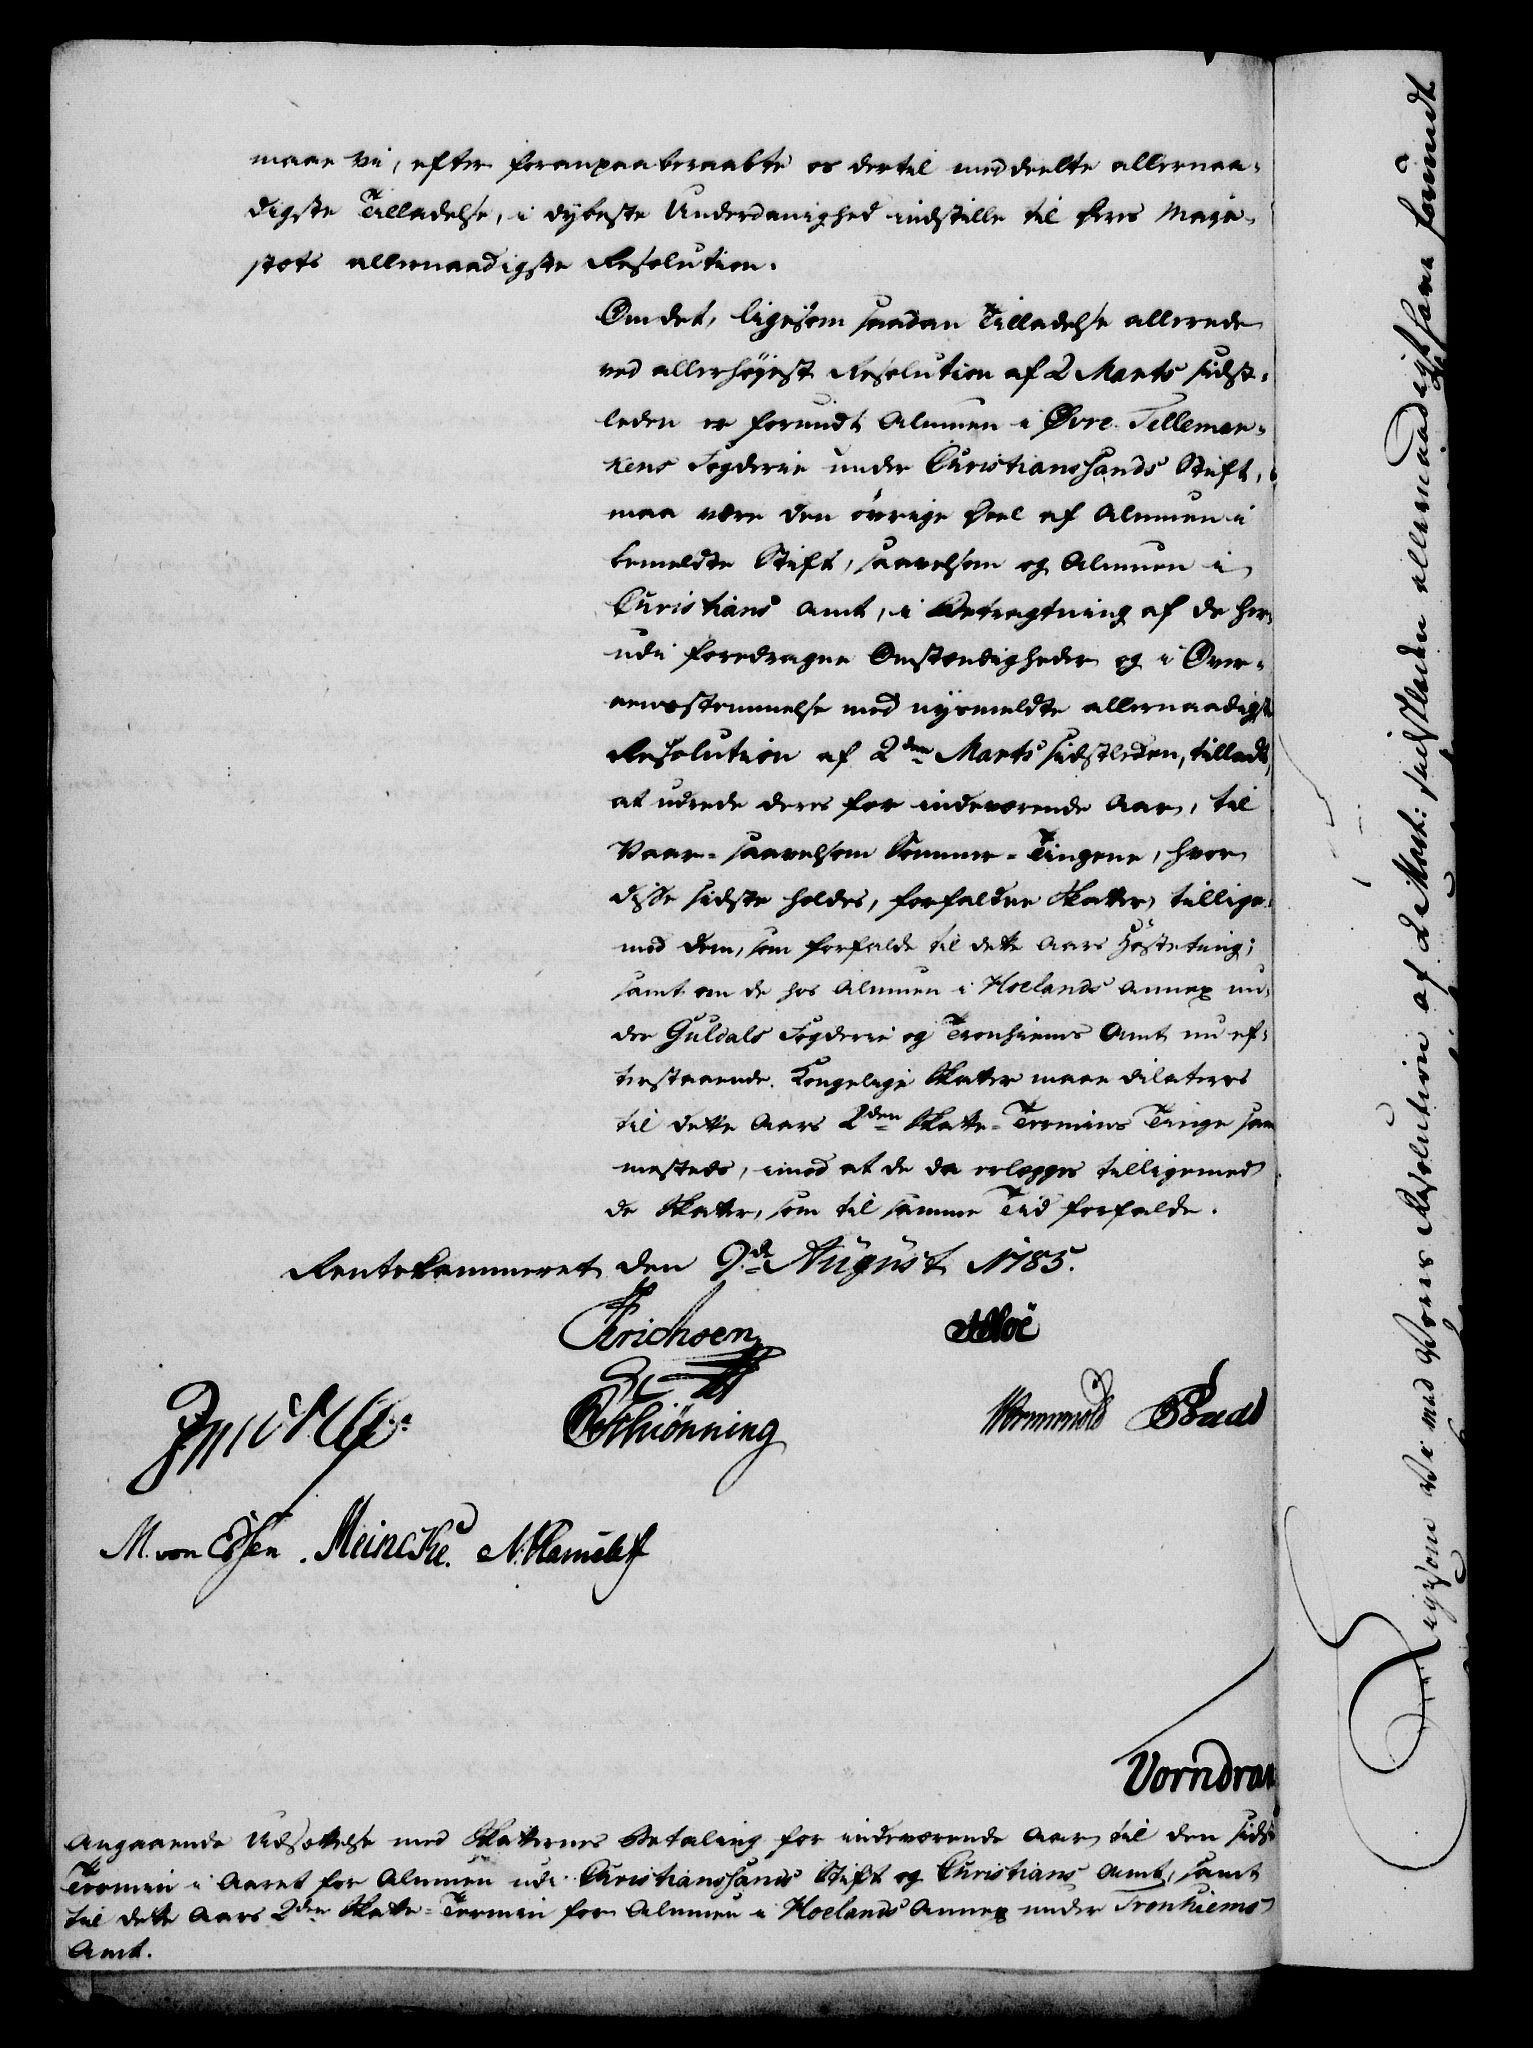 maae vi, efter foranpaaberaabte os dertil meddeelte allernaa-
digste Tilladelse, i dybeste Underdanighed indstille til Deres Maje-
stæts allernaadigste Resolution.
Om det, ligesom saadan Tilladelse allerede
ved allerhøyest Resolution af 2 Marts sidst-
leden er forundt Almuen i Øvre Tellemar-
kens Fogderie under Christianssands Stift,
maa være den øvrige Deel af Almuen i
bemeldte Stift, saavelsom og Almuen i
Christians Amt, i Betragtning af de her-
udi foredragne Omstændigheder og i Over-
eensstemmelse med nysmeldte allernaadigste
Resolution af 2den Marts sidstleden, tilladt,
at udrede deres for indeværende Aar, til
Vaar- saavelsom Sommer-Tingene, hvor
disse sidste holdes, forfaldne Skatter, tillige
med dem, som forfalde til dette Aars Høsteting;
samt om de hos Almuen i Hoelands Annex un-
der Guldals Fogderie og Tronhiems Amt nu ef-
terstaaende Kongelige Skatter maae dilateres
til dette Aars 2den Skatte-Termins Tinge sam
mesteds, imod at de da erlægges tilligemed
de Skatter, som til samme Tid forfalde.
Rentekammeret den 9de August 1785.
Erichsen
Schiønning
Wormskiold
M. von Essen. Meincke.
Vorndran
Angaaende Udsættelse med Skatternes Betaling for indeværende Aar til den sidste
Termin i Aaret for Almuen udi Christianssands Stift og Christians Amt, samt
til dette Aars 2den Skatte-Termin for Almuen i Hoelands Annex under Tronhiems
Amt.
Ligesom Vi med Vores Resolution af 2 Mart: sidstleden allernaadigst have forundt